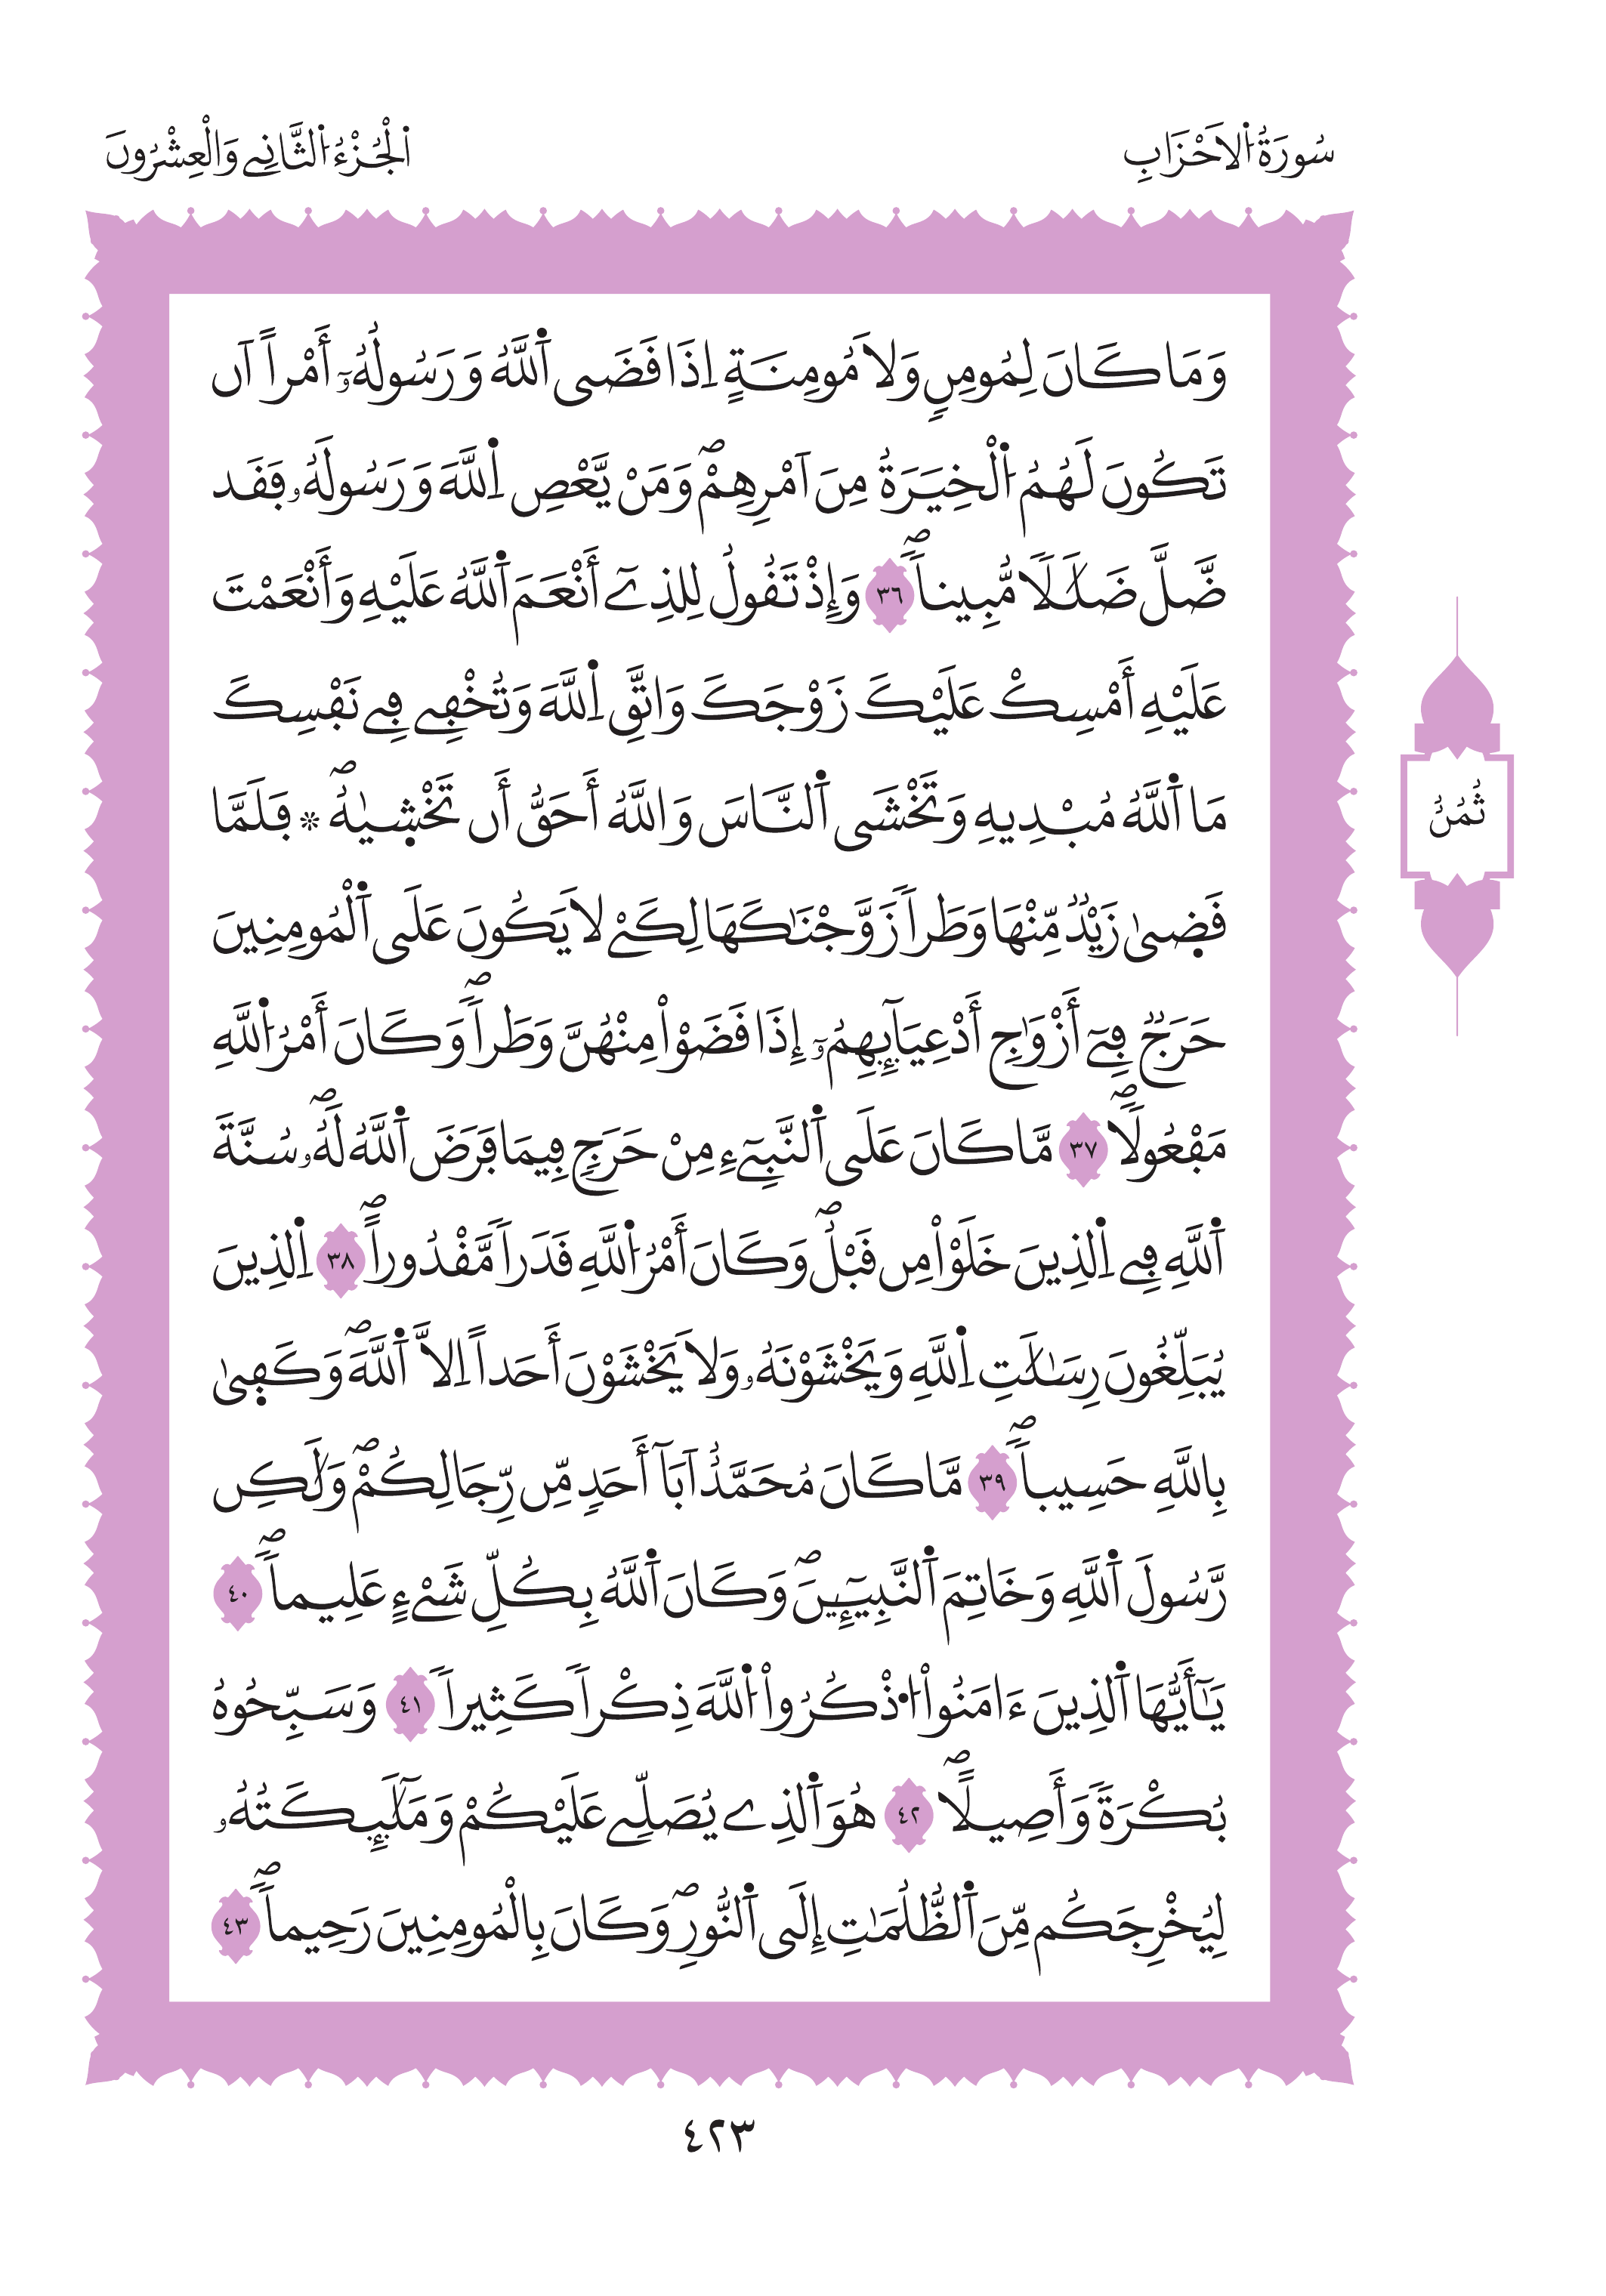 سُورَةُ اُ۬لَاحْزَابِ
اَ۬لْجُزْءُ اُ۬لثَّانِے وَالْعِشْرُونَ
وَمَا كَانَ لِمُومِنٖ وَلَا مُومِنَةٍ اِذَا قَضَى اَ۬للَّهُ وَرَسُولُهُۥٓ أَمْراً اَن
تَكُونَ لَهُمُ اُ۬لْخِيَرَةُ مِنَ اَمْرِهِمْۖ وَمَنْ يَّعْصِ اِ۬للَّهَ وَرَسُولَهُۥ فَقَد
ضَّلَّ ضَلَٰلاٗ مُّبِيناٗۖ ٣٦ وَإِذْ تَقُولُ لِلذِےٓ أَنْعَمَ اَ۬للَّهُ عَلَيْهِ وَأَنْعَمْتَ
عَلَيْهِ أَمْسِكْ عَلَيْكَ زَوْجَكَ وَاتَّقِ اِ۬للَّهَ وَتُخْفِے فِے نَفْسِكَ
مَا اَ۬للَّهُ مُبْدِيهِ وَتَخْشَى اَ۬لنَّاسَ وَاللَّهُ أَحَقُّ أَن تَخْشٜيٰهُۖ * فَلَمَّا
قَضٜىٰ زَيْدٞ مِّنْهَا وَطَراٗ زَوَّجْنَٰكَهَا لِكَےْ لَا يَكُونَ عَلَى اَ۬لْمُومِنِينَ
حَرَجٞ فِےٓ أَزْوَٰجِ أَدْعِيَآئِهِمُۥٓ إِذَا قَضَوْاْ مِنْهُنَّ وَطَراٗۖ وَكَانَ أَمْرُ اُ۬للَّهِ
مَفْعُولاٗۖ ٣٧ مَّا كَانَ عَلَى اَ۬لنَّبِےٓءِ مِنْ حَرَجٖ فِيمَا فَرَضَ اَ۬للَّهُ لَهُۥۖ سُنَّةَ
اَ۬للَّهِ فِے اِ۬لذِينَ خَلَوْاْ مِن قَبْلُۖ وَكَانَ أَمْرُ اُ۬للَّهِ قَدَراٗ مَّقْدُوراًۖ ٣٨ اِ۬لذِينَ
يُبَلِّغُونَ رِسَٰلَٰتِ اِ۬للَّهِ وَيَخْشَوْنَهُۥ وَلَا يَخْشَوْنَ أَحَداً اِلَّا اَ۬للَّهَۖ وَكَفٜىٰ
بِاللَّهِ حَسِيباٗۖ ٣٩ مَّا كَانَ مُحَمَّدٌ اَبَآ أَحَدٖ مِّن رِّجَالِكُمْۖ وَلَٰكِن
رَّسُولَ اَ۬للَّهِ وَخَاتِمَ اَ۬لنَّبِيٓـِٕينَۖ وَكَانَ اَ۬للَّهُ بِكُلِّ شَےْءٍ عَلِيماٗۖ ٤٠
يَٰٓأَيُّهَا اَ۬لذِينَ ءَامَنُواْ اُ۟ذْكُرُواْ اُ۬للَّهَ ذِكْراٗ كَثِيراٗ ٤١ وَسَبِّحُوهُ
بُكْرَةٗ وَأَصِيلاًۖ ٤٢ هُوَ اَ۬لذِے يُصَلِّے عَلَيْكُمْ وَمَلَٰٓئِكَتُهُۥ
لِيُخْرِجَكُم مِّنَ اَ۬لظُّلُمَٰتِ إِلَى اَ۬لنُّورِۖ وَكَانَ بِالْمُومِنِينَ رَحِيماٗۖ ٤٣
ثُمُنُ
٤٢٣